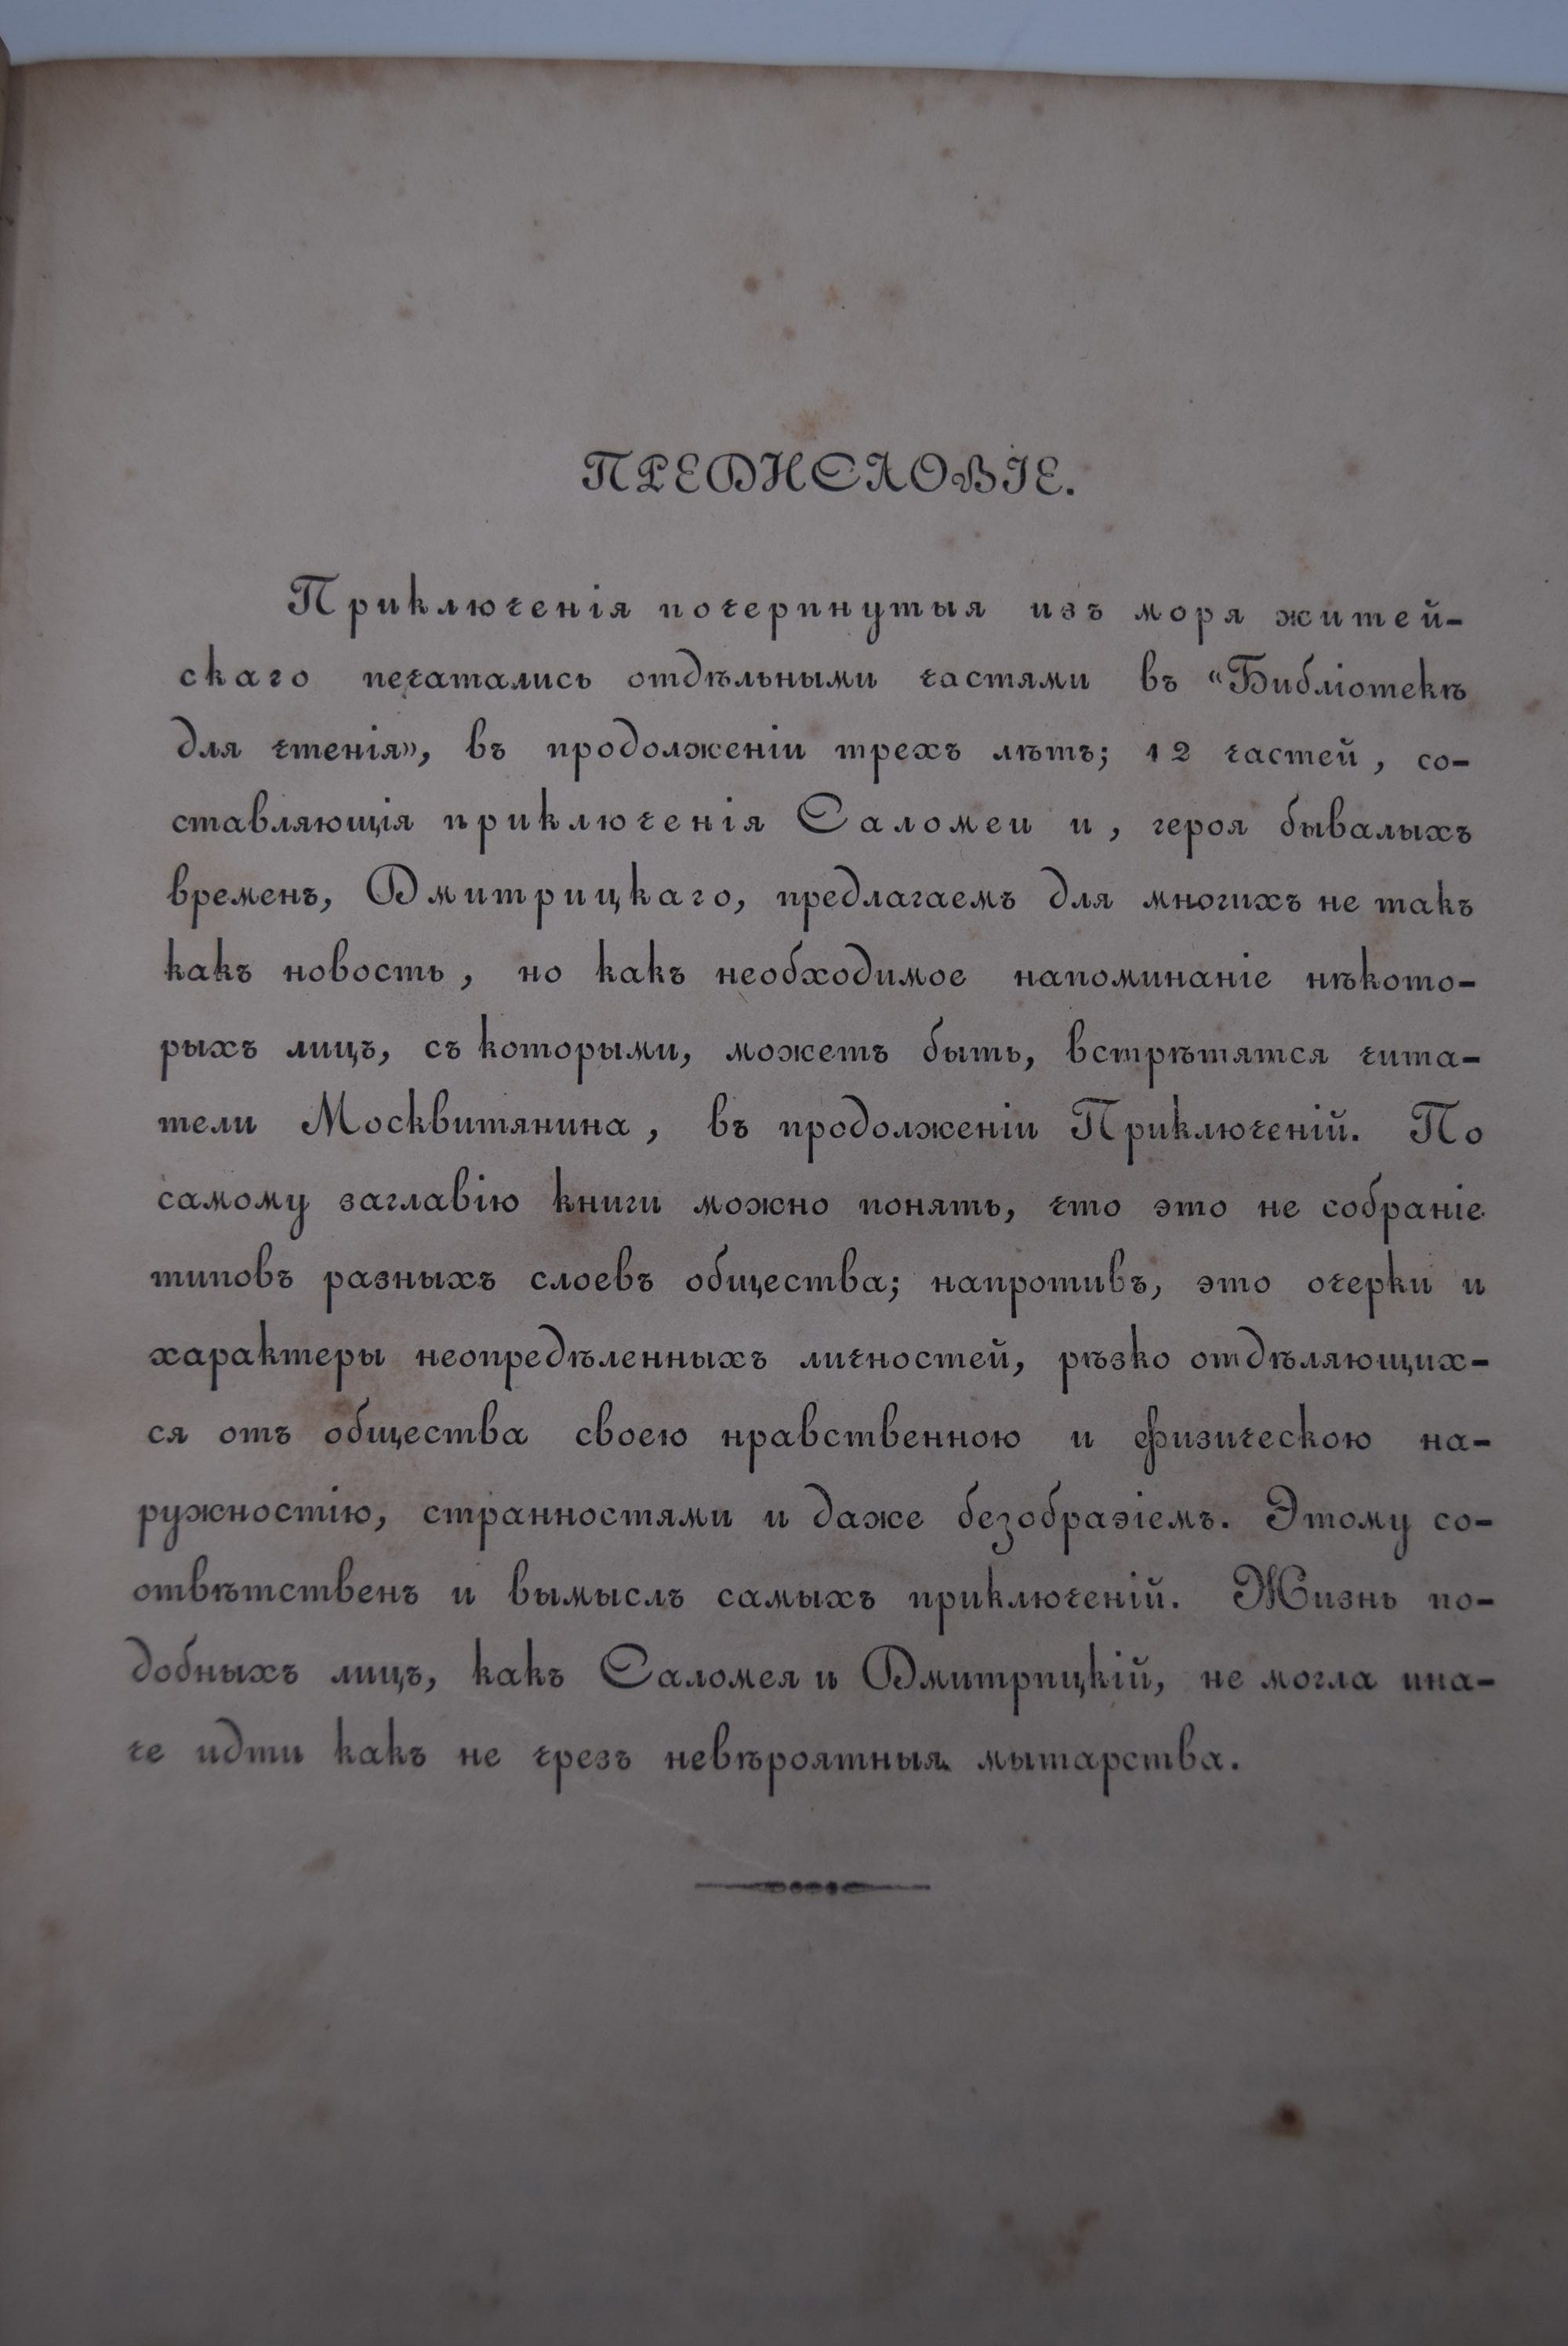 ПРЕДИСЛОВІЕ.
Приключенія почерпнутыя изъ моря житей-
скаго печатались отдѣльными частями въ «Библіотекѣ
для чтенія», въ продолженіи трехъ лѣтъ; 12 частей, со-
ставляющія приключенія Саломеи и, героя бывалыхъ
временъ, Дмитрицкаго, предлагаемъ для многихъ не такъ
какъ новость, но какъ необходимое напоминаніе нѣкото-
рыхъ лицъ, съ которыми, можетъ быть, встрѣтятся чита-
тели Москвитянина, въ продолженіи Приключеній. По
самому заглавію книги можно понять, что это не собраніе
типовъ разныхъ слоевъ общества; напротивъ, это очерки и
характеры неопредѣленныхъ личностей, рѣзко отдѣляющих-
ся отъ общества своею нравственною и физическою на-
ружностію, странностями и даже безобразіемъ. Этому со-
отвѣтственъ и вымыслъ самыхъ приключеній. Жизнь по-
добныхъ лицъ, какъ Саломея и Дмитрицкій, не могла ина-
че идти какъ не чрезъ невѣроятныя мытарства.